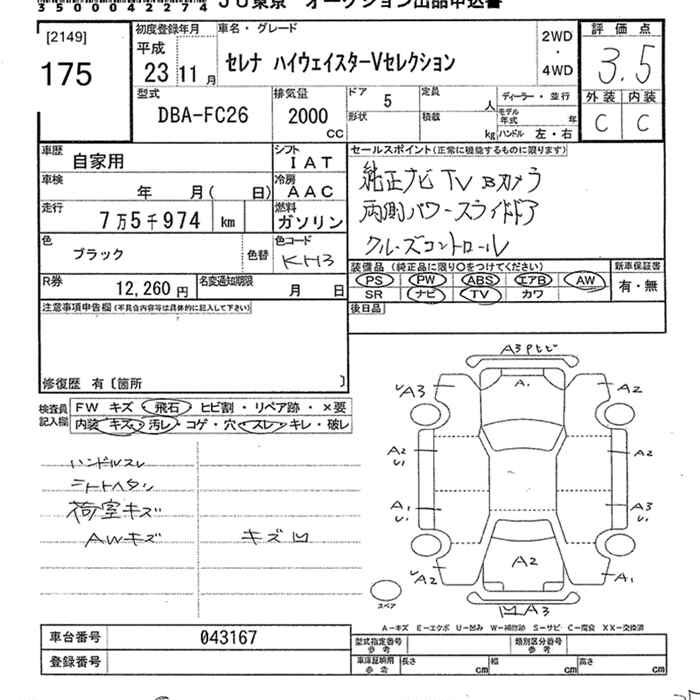 35000042274 JU東京 オークション出品申込書
[2149]
175
初度登録年月
平成
23 11 月
車名・グレード
セレナ ハイウェイスターVセレクション
2WD
・
4WD
評価点
3.5
外装 内装
C C
型式
DBA-FC26
排気量
2000
CC
ドア 5
形状
定員 人
積載 kg
ディーラー・並行
モデル年式 年
ハンドル 左・右
車歴 自家用
シフト IAT
車検 年 月( 日)
冷房 AAC
走行 7万5千974 km
燃料 ガソリン
色 ブラック 色替
色コード KH3
R券 12,260円
名変通知期限 月 日
セールスポイント(正常に機能するものに限ります)
純正ナビ TV Bカメラ
両側パワースライドドア
クルーズコントロール
装備品(純正品に限り○をつけてください)
PS PW ABS エアB AW
SR ナビ TV カワ
新車保証書
有・無
後日品
注意事項申告欄(不具合内容等は具体的に記入して下さい)
修復歴 有〔箇所 〕
検査員記入欄
FW キズ・飛石・ヒビ割・リペア跡・×要
内装 キズ・汚レ・コゲ・穴・スレ・キレ・破レ
ハンドルスレ
シートヘタリ
荷室キズ
AWキズ
キズ凹
A3
A1
A3
A2
A2
U1
A2
A1
U1
A3
U1
A2
A2
A1
凹A3
スペア
A-キズ E-エクボ U-凹み W-補修跡 S-サビ C-腐食 XX-交換済
車台番号 043167
登録番号
型式指定番号
参考
類別区分番号
参考
車庫証明用
参考
長さ cm 幅 cm 高さ cm